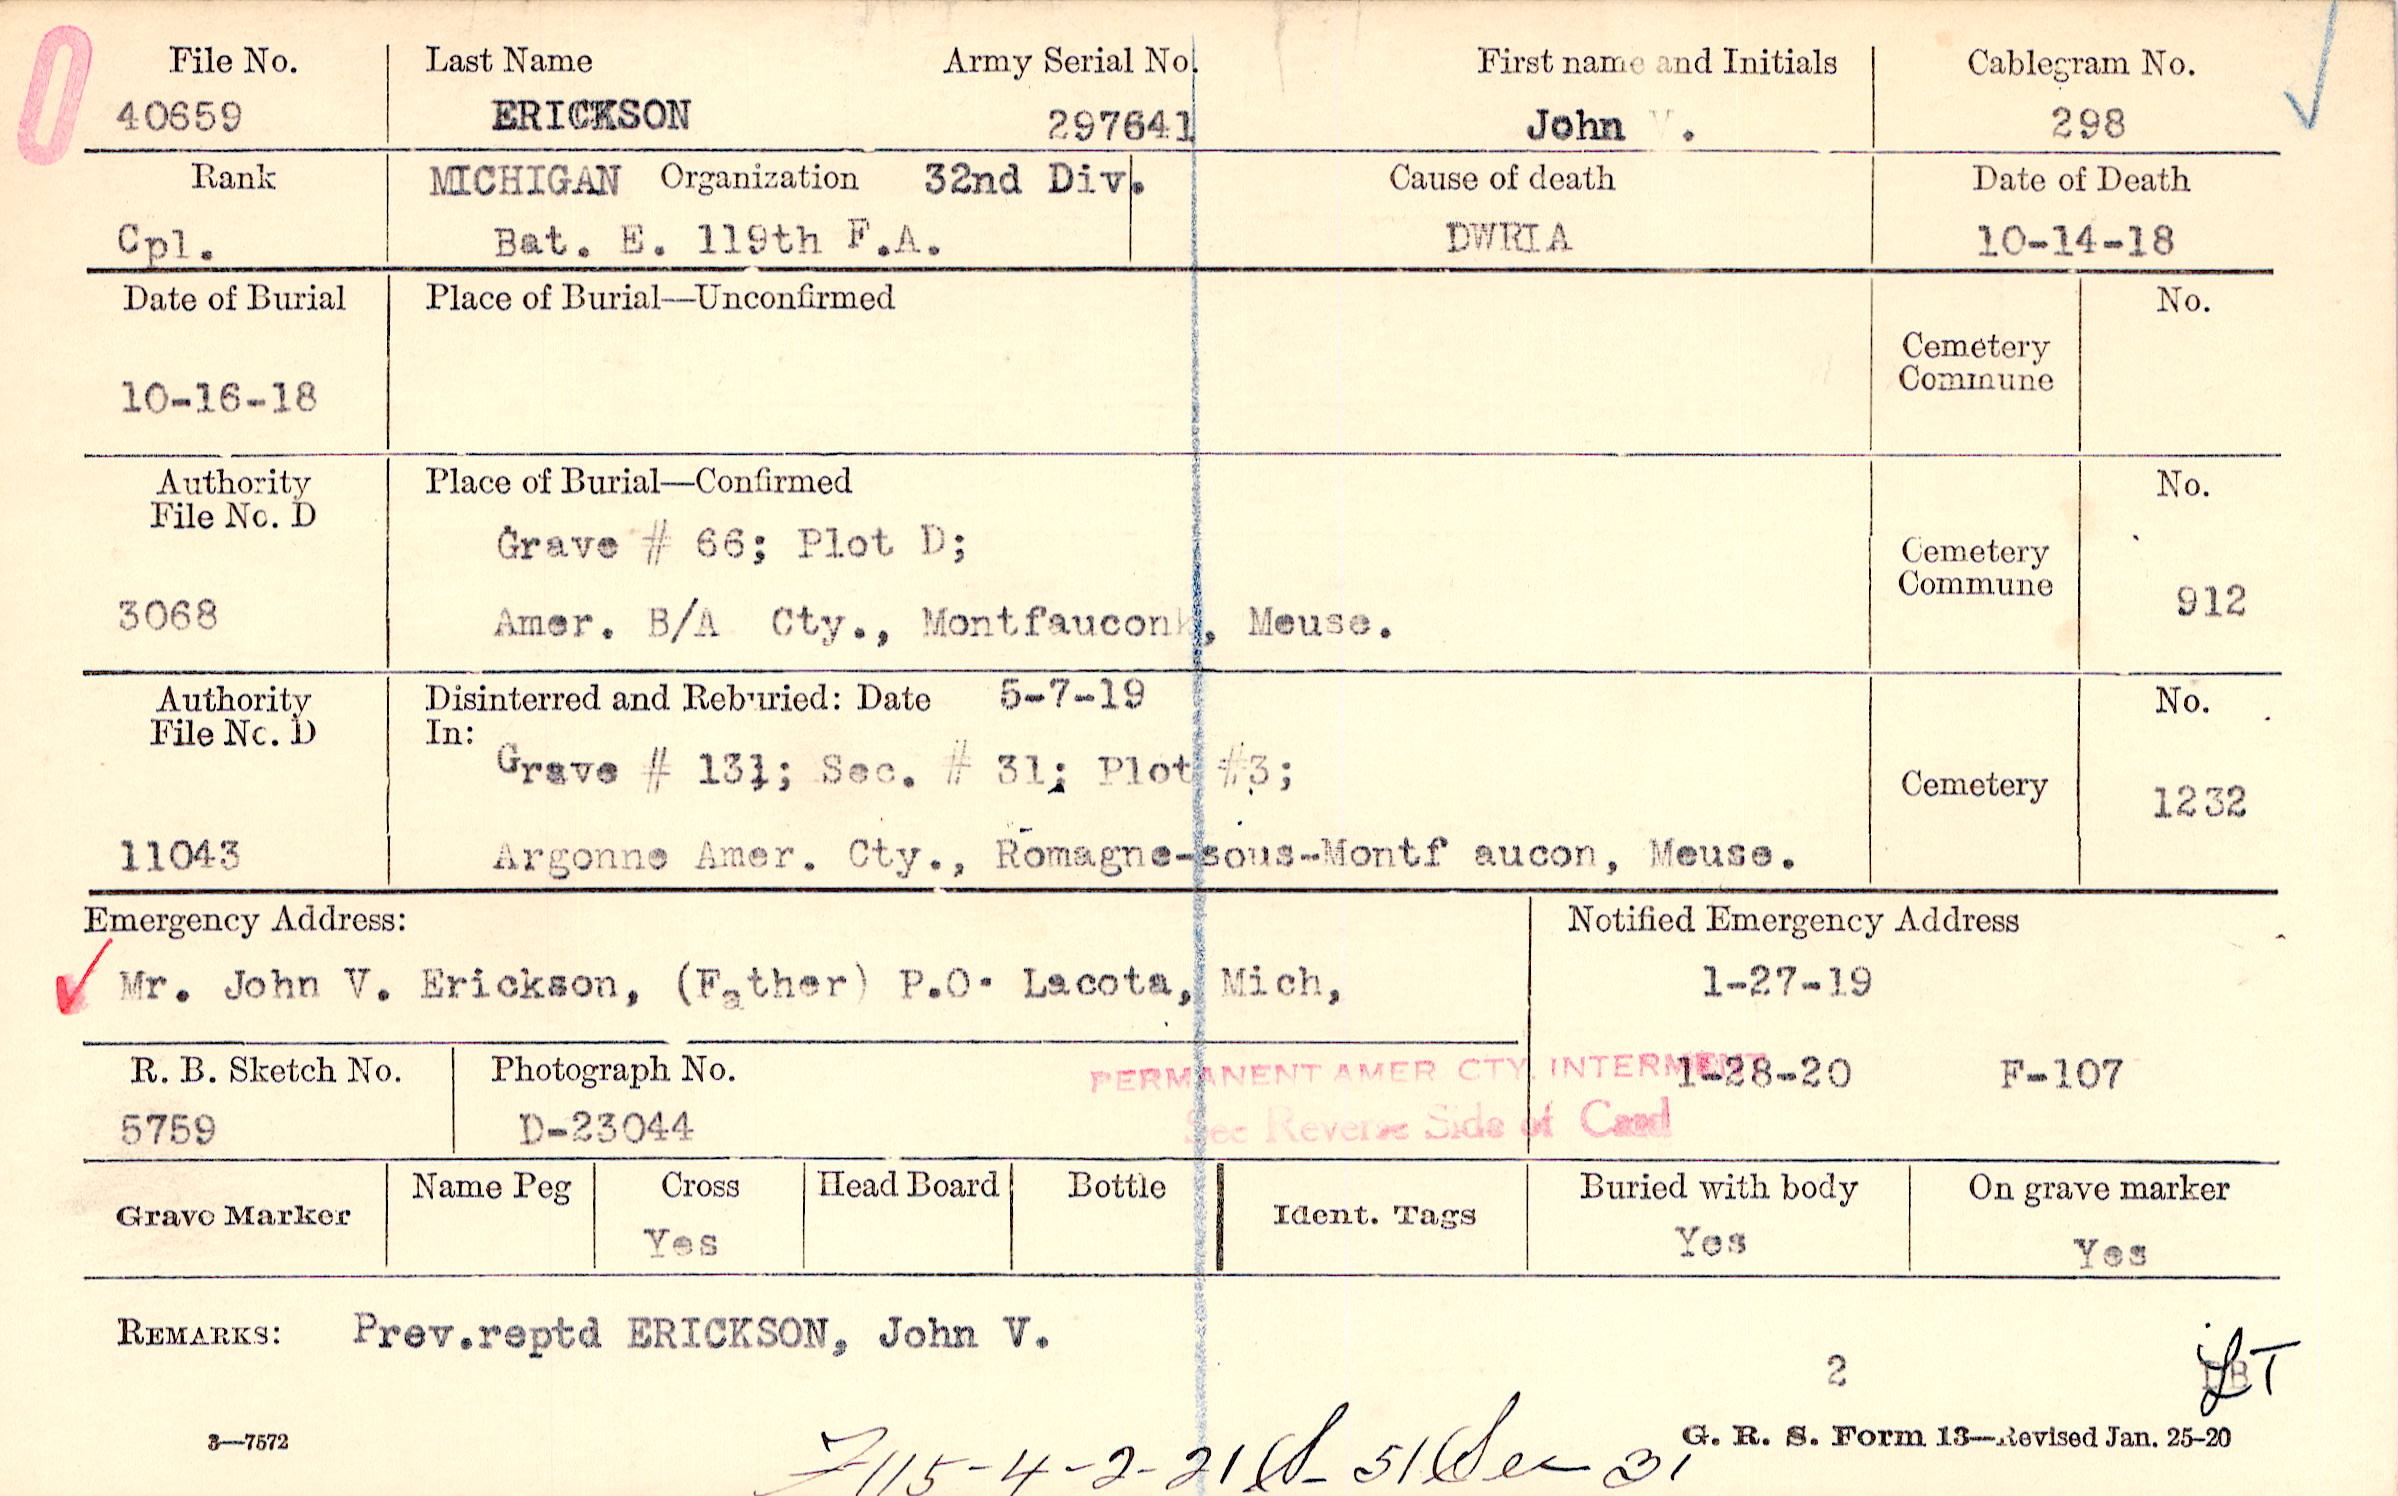 File No. Last Name Army Serial No. First name and Initials Cablegram No.
40659 ERICKSON 297641 John V. 298
Rank MICHIGAN Organization 32nd Div. Cause of death Date of Death
Cpl. Bat. E. 119th F.A. DWRIA 10-14-18
Date of Burial Place of Burial—Unconfirmed No.
Cemetery
Commune
10-16-18
Authority Place of Burial—Confirmed No.
File No. D
Grave # 66; Plot D;
Cemetery
Commune
3068 Amer. B/A Cty., Montfaucon, Meuse. 912
Authority Disinterred and Reburied: Date 5-7-19 No.
File No. D In:
Grave # 131; Sec. # 31; Plot #3;
Cemetery 1232
11043 Argonne Amer. Cty., Romagne-sous-Montf aucon, Meuse.
Emergency Address: Notified Emergency Address
Mr. John V. Erickson, (Father) P.O. Lacota, Mich, 1-27-19
R. B. Sketch No. Photograph No. PERMANENT AMER CTY. INTERMENT 1-28-20 F-107
5759 D-23044 See Reverse Side of Card
Grave Marker Name Peg Cross Head Board Bottle Ident. Tags Buried with body On grave marker
Yes Yes Yes
REMARKS: Prev.reptd ERICKSON, John V.
2 LT
3—7572 G. R. S. Form 13—Revised Jan. 25-20
115-4-2-21 51 Sec 31